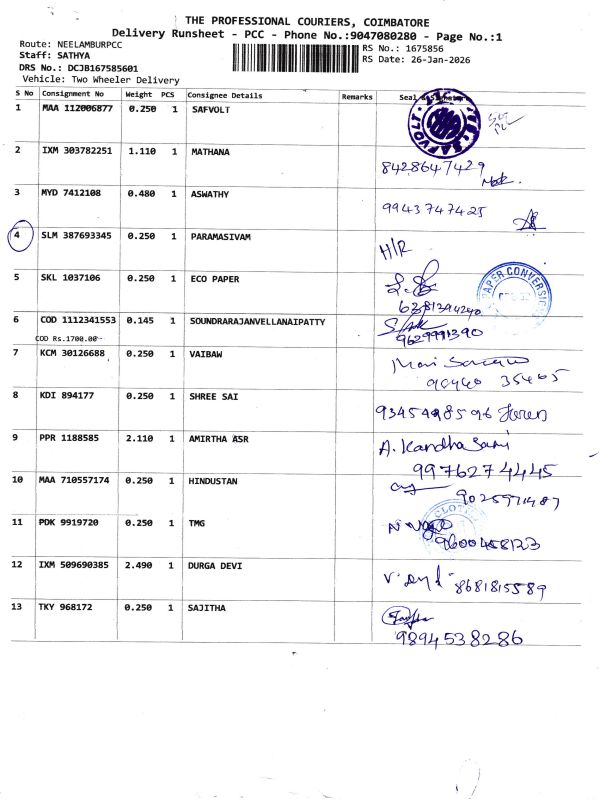 THE PROFESSIONAL COURIERS, COIMBATORE
Delivery Runsheet - PCC - Phone No.:9047080280 - Page No.:1
Route: NEELAMBURPCC
Staff: SATHYA
DRS No.: DCJB167585601
Vehicle: Two Wheeler Delivery
RS No.: 1675856
RS Date: 26-Jan-2026
S No Consignment No Weight PCS Consignee Details Remarks Seal &
1 MAA 112006877 0.250 1 SAFVOLT
SAFVOLT
2 IXM 303782251 1.110 1 MATHANA
8428647429
3 MYD 7412108 0.480 1 ASWATHY
9943747425
4 SLM 387693345 0.250 1 PARAMASIVAM
H/R
5 SKL 1037106 0.250 1 ECO PAPER
PAPER CONVERSION
6381394240
6 COD 1112341553 0.145 1 SOUNDRARAJANVELLANAIPATTY
COD Rs.1700.00
9629991390
7 KCM 30126688 0.250 1 VAIBAW
35405
8 KDI 894177 0.250 1 SHREE SAI
9345498596
9 PPR 1188585 2.110 1 AMIRTHA ASR
A. Kandhasami
9976274445
10 MAA 710557174 0.250 1 HINDUSTAN
9025971487
11 PDK 9919720 0.250 1 TMG
9600458123
12 IXM 509690385 2.490 1 DURGA DEVI
8681815589
13 TKY 968172 0.250 1 SAJITHA
9894538286